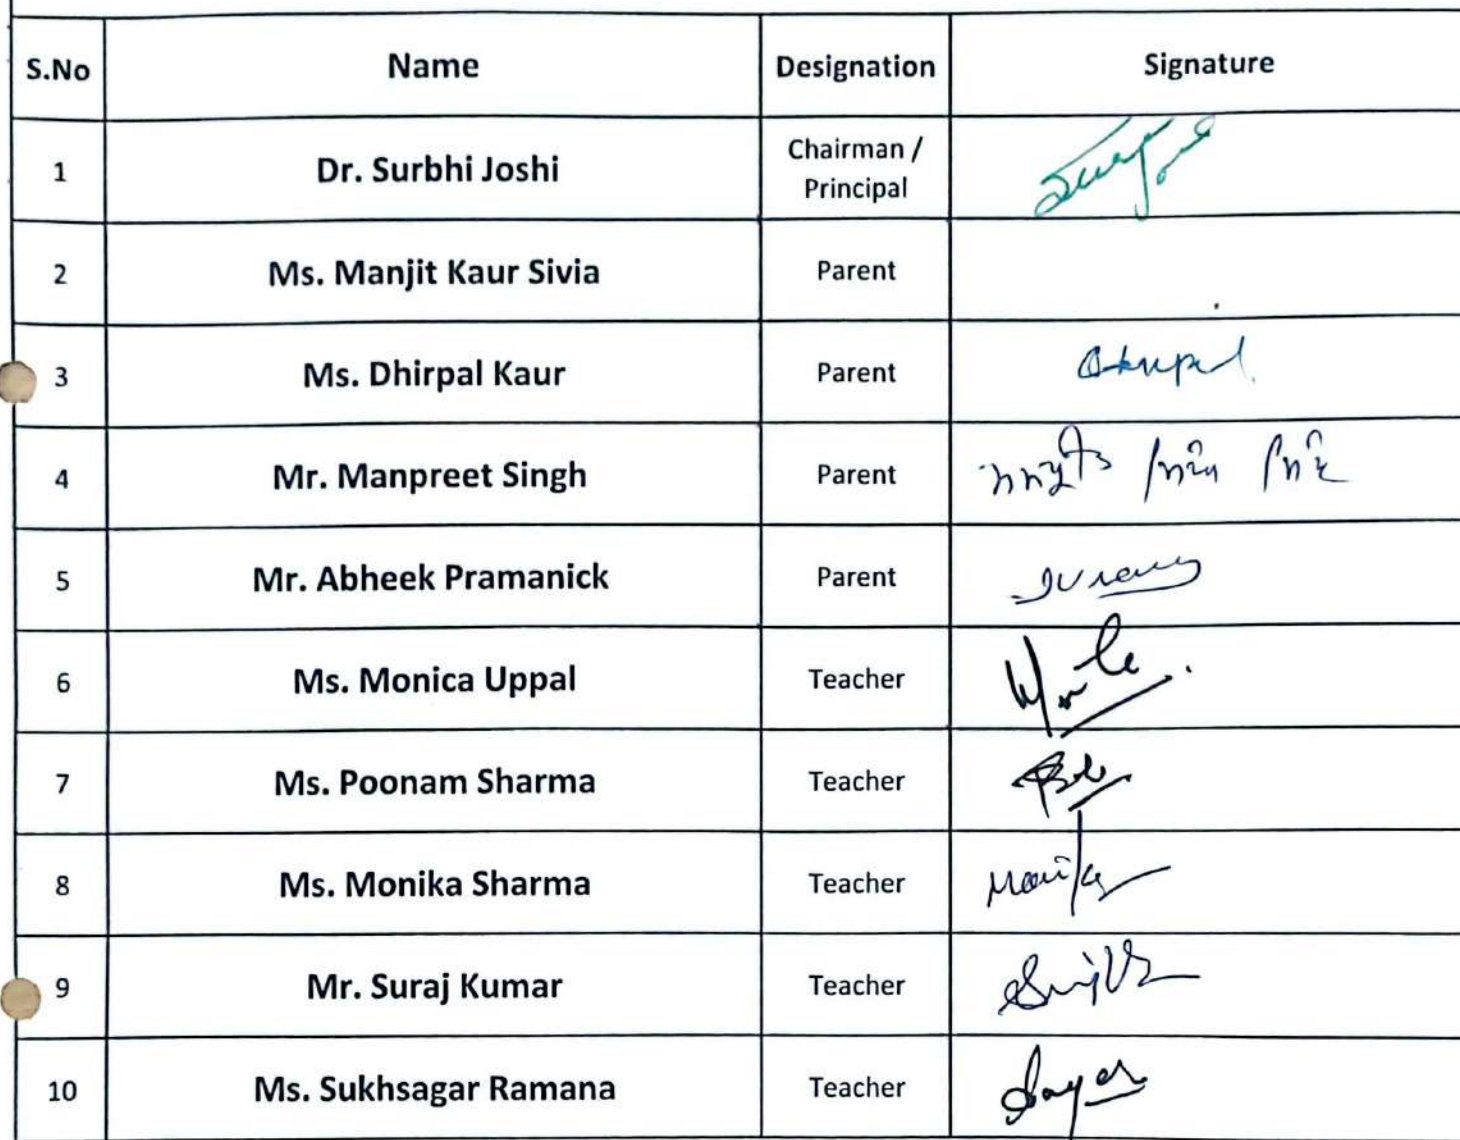 S.No Name Designation Signature
1 Dr. Surbhi Joshi Chairman / Principal
2 Ms. Manjit Kaur Sivia Parent
3 Ms. Dhirpal Kaur Parent
4 Mr. Manpreet Singh Parent
5 Mr. Abheek Pramanick Parent
6 Ms. Monica Uppal Teacher
7 Ms. Poonam Sharma Teacher
8 Ms. Monika Sharma Teacher Monika
9 Mr. Suraj Kumar Teacher
10 Ms. Sukhsagar Ramana Teacher Sagar